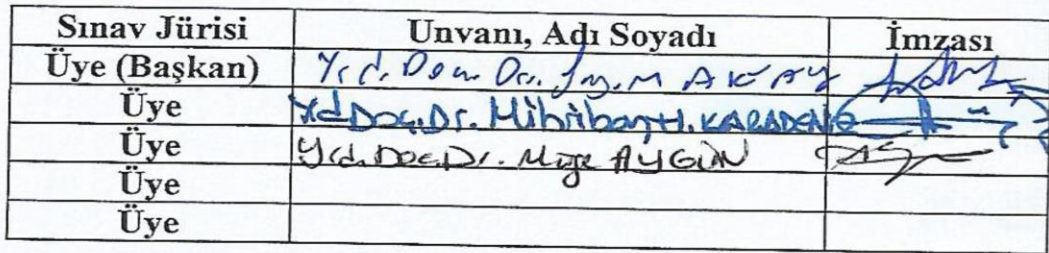 Sınav Jürisi Unvanı, Adı Soyadı İmzası
Üye (Başkan) Yrd. Doç. Dr. M AKAY
Üye Yd Doç. Dr. Mihriban H. KARADENİZ
Üye Yrd. Doç. Dr. Müge AYGÜN
Üye
Üye